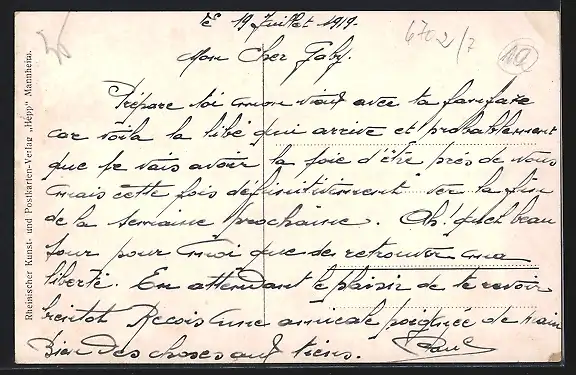 le 19 Juillet 1919.
6702/7
Mon Cher Gaby.
Prépare toi mon vieux avec ta fanfare
car voila la libé qui arrive et probablement
que je vais avoir la joie d'être près de vous
mais cette fois définitivement ver la fin
de la semaine prochaine. Ah! quel beau
jour pour moi que de retrouver ma
liberté. En attendant le plaisir de te revoir
bientot Recois une amicale poignée de main
Bien des choses aux tiens. Paul
Rheinischer Kunst- und Postkarten-Verlag „Hepp" Mannheim.